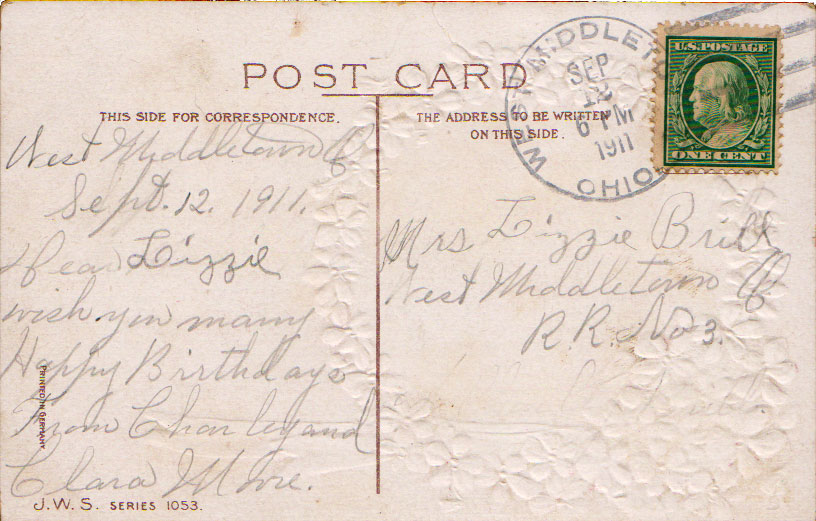 POST CARD
THIS SIDE FOR CORRESPONDENCE.
THE ADDRESS TO BE WRITTEN
ON THIS SIDE.
WEST MIDDLET
SEP
12
6 PM
1911
OHIO
U.S. POSTAGE
ONE CENT
West Middletown O
Sept. 12. 1911.
Dear Lizzie
wish you many
Happy Birthdays
From Charley and
Clara
Mrs Lizzie Brill
West Middletown O
R R. No 3.
PRINTED IN GERMANY
J.W.S. SERIES 1053.